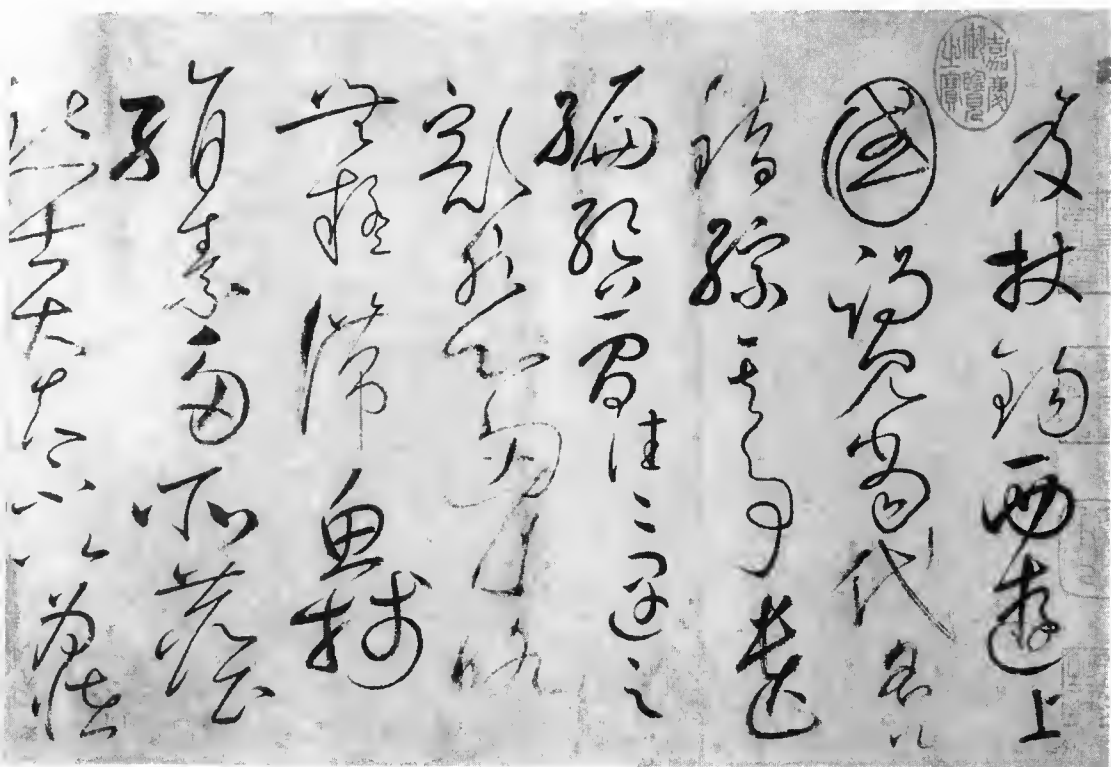 嘉慶御覽之寶
笈杖錫西遊上
國謁見當代名公
錯綜其事遺
編絕簡往〻遇之
豁然心胸略
無疑滯魚牋
絹素多所塵
點士大夫不以為怪